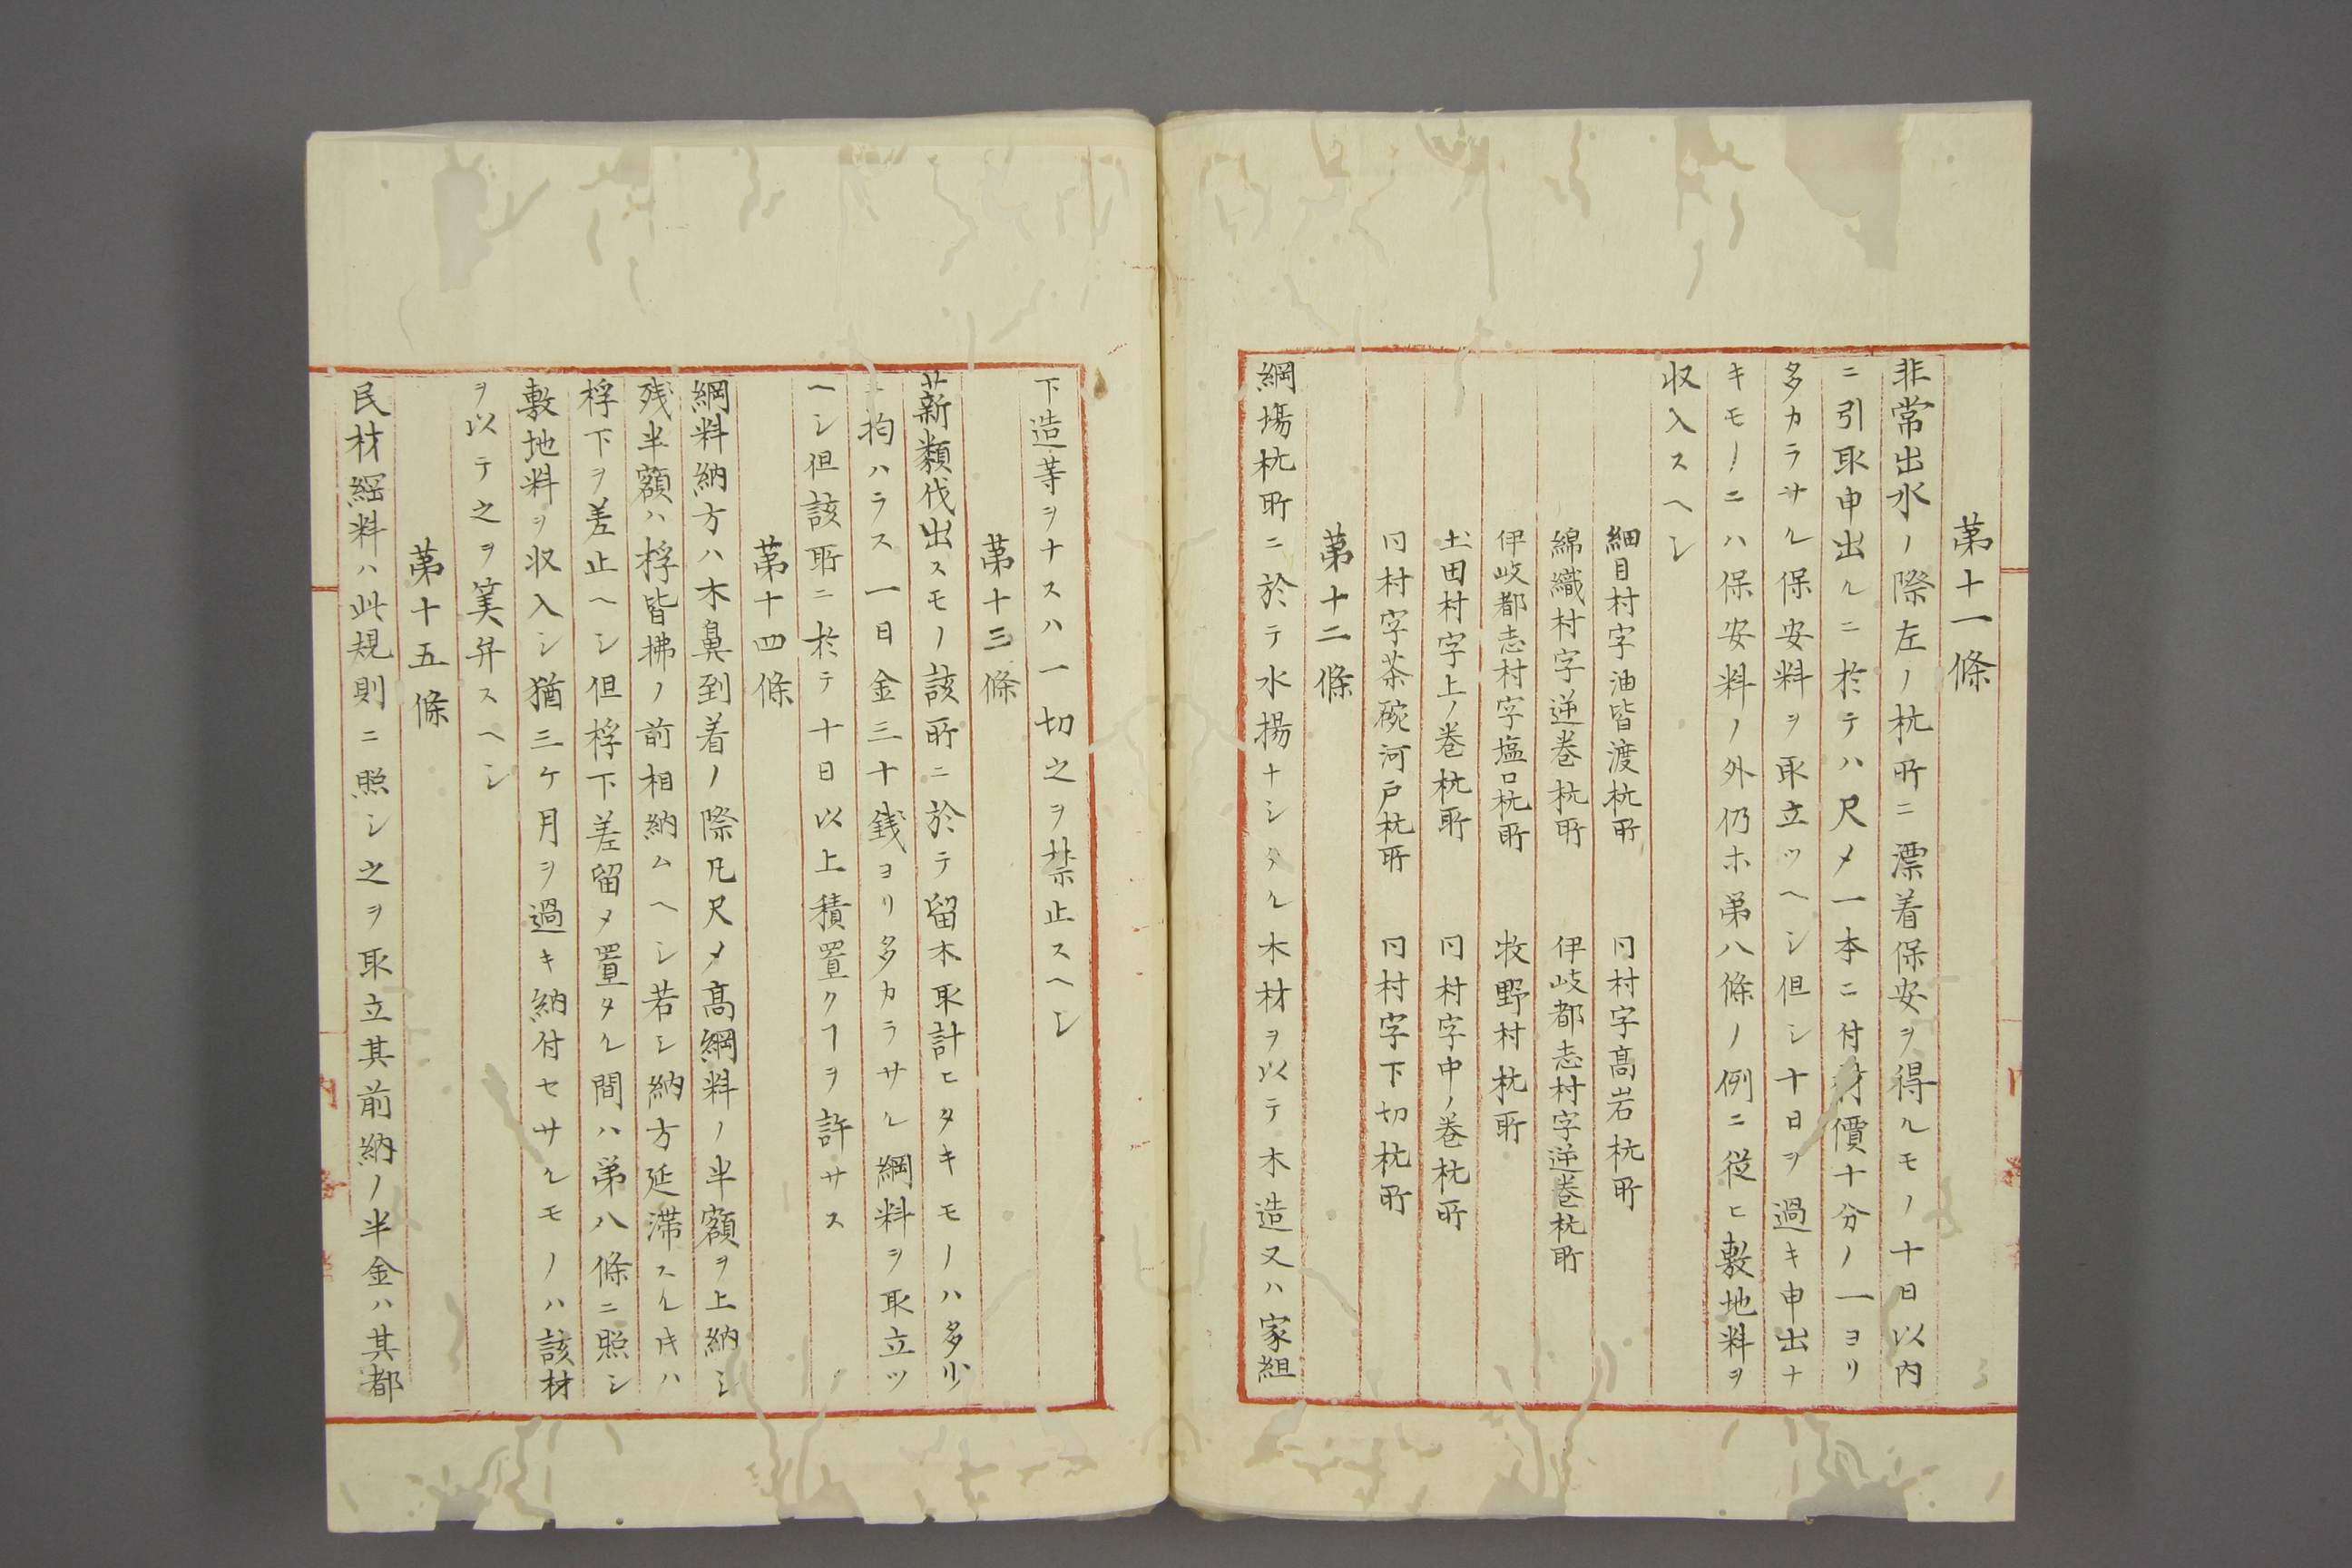 第十一條
非常出水ノ際左ノ杭所ニ漂着保安ヲ得ルモノ十日以内
ニ引取申出ルニ於テハ尺〆一本ニ付材價十分ノ一ヨリ
多カラサル保安料ヲ取立ツヘシ但シ十日ヲ過キ申出ナ
キモノニハ保安料ノ外仍ホ第八條ノ例ニ従ヒ敷地料ヲ
収入スヘシ
細目村字油皆渡杭所　同村字髙岩杭所
綿織村字逆巻杭所　伊岐都志村字逆巻杭所
伊岐都志村字塩口杭所　牧野村杭所
土田村字上ノ巻杭所　同村字中ノ巻杭所
同村字茶碗河戸杭所　同村字下切杭所
第十二條
綱塲杭所ニ於テ水揚ナシタル木材ヲ以テ木造又ハ家組
下造等ヲナスハ一切之ヲ禁止スヘシ
第十三條
薪類伐出スモノ該所ニ於テ留木取計ヒタキモノハ多少
ニ拘ハラス一日金三十銭ヨリ多カラサル綱料ヲ取立ツ
ヘシ但該所ニ於テ十日以上積置クヿヲ許サス
第十四條
綱料納方ハ木鼻到着ノ際凡尺〆髙綱料ノ半額ヲ上納シ
残半額ハ桴皆拂ノ前相納ムヘシ若シ納方延滞スル𪜈ハ
桴下ヲ差止ヘシ但桴下差留メ置タル間ハ第八條ニ照シ
敷地料ヲ収入シ猶三ケ月ヲ過キ納付セサルモノハ該材
ヲ以テ之ヲ筭弁スヘシ
第十五條
民材綱料ハ此規則ニ照シ之ヲ取立其前納ノ半金ハ其都